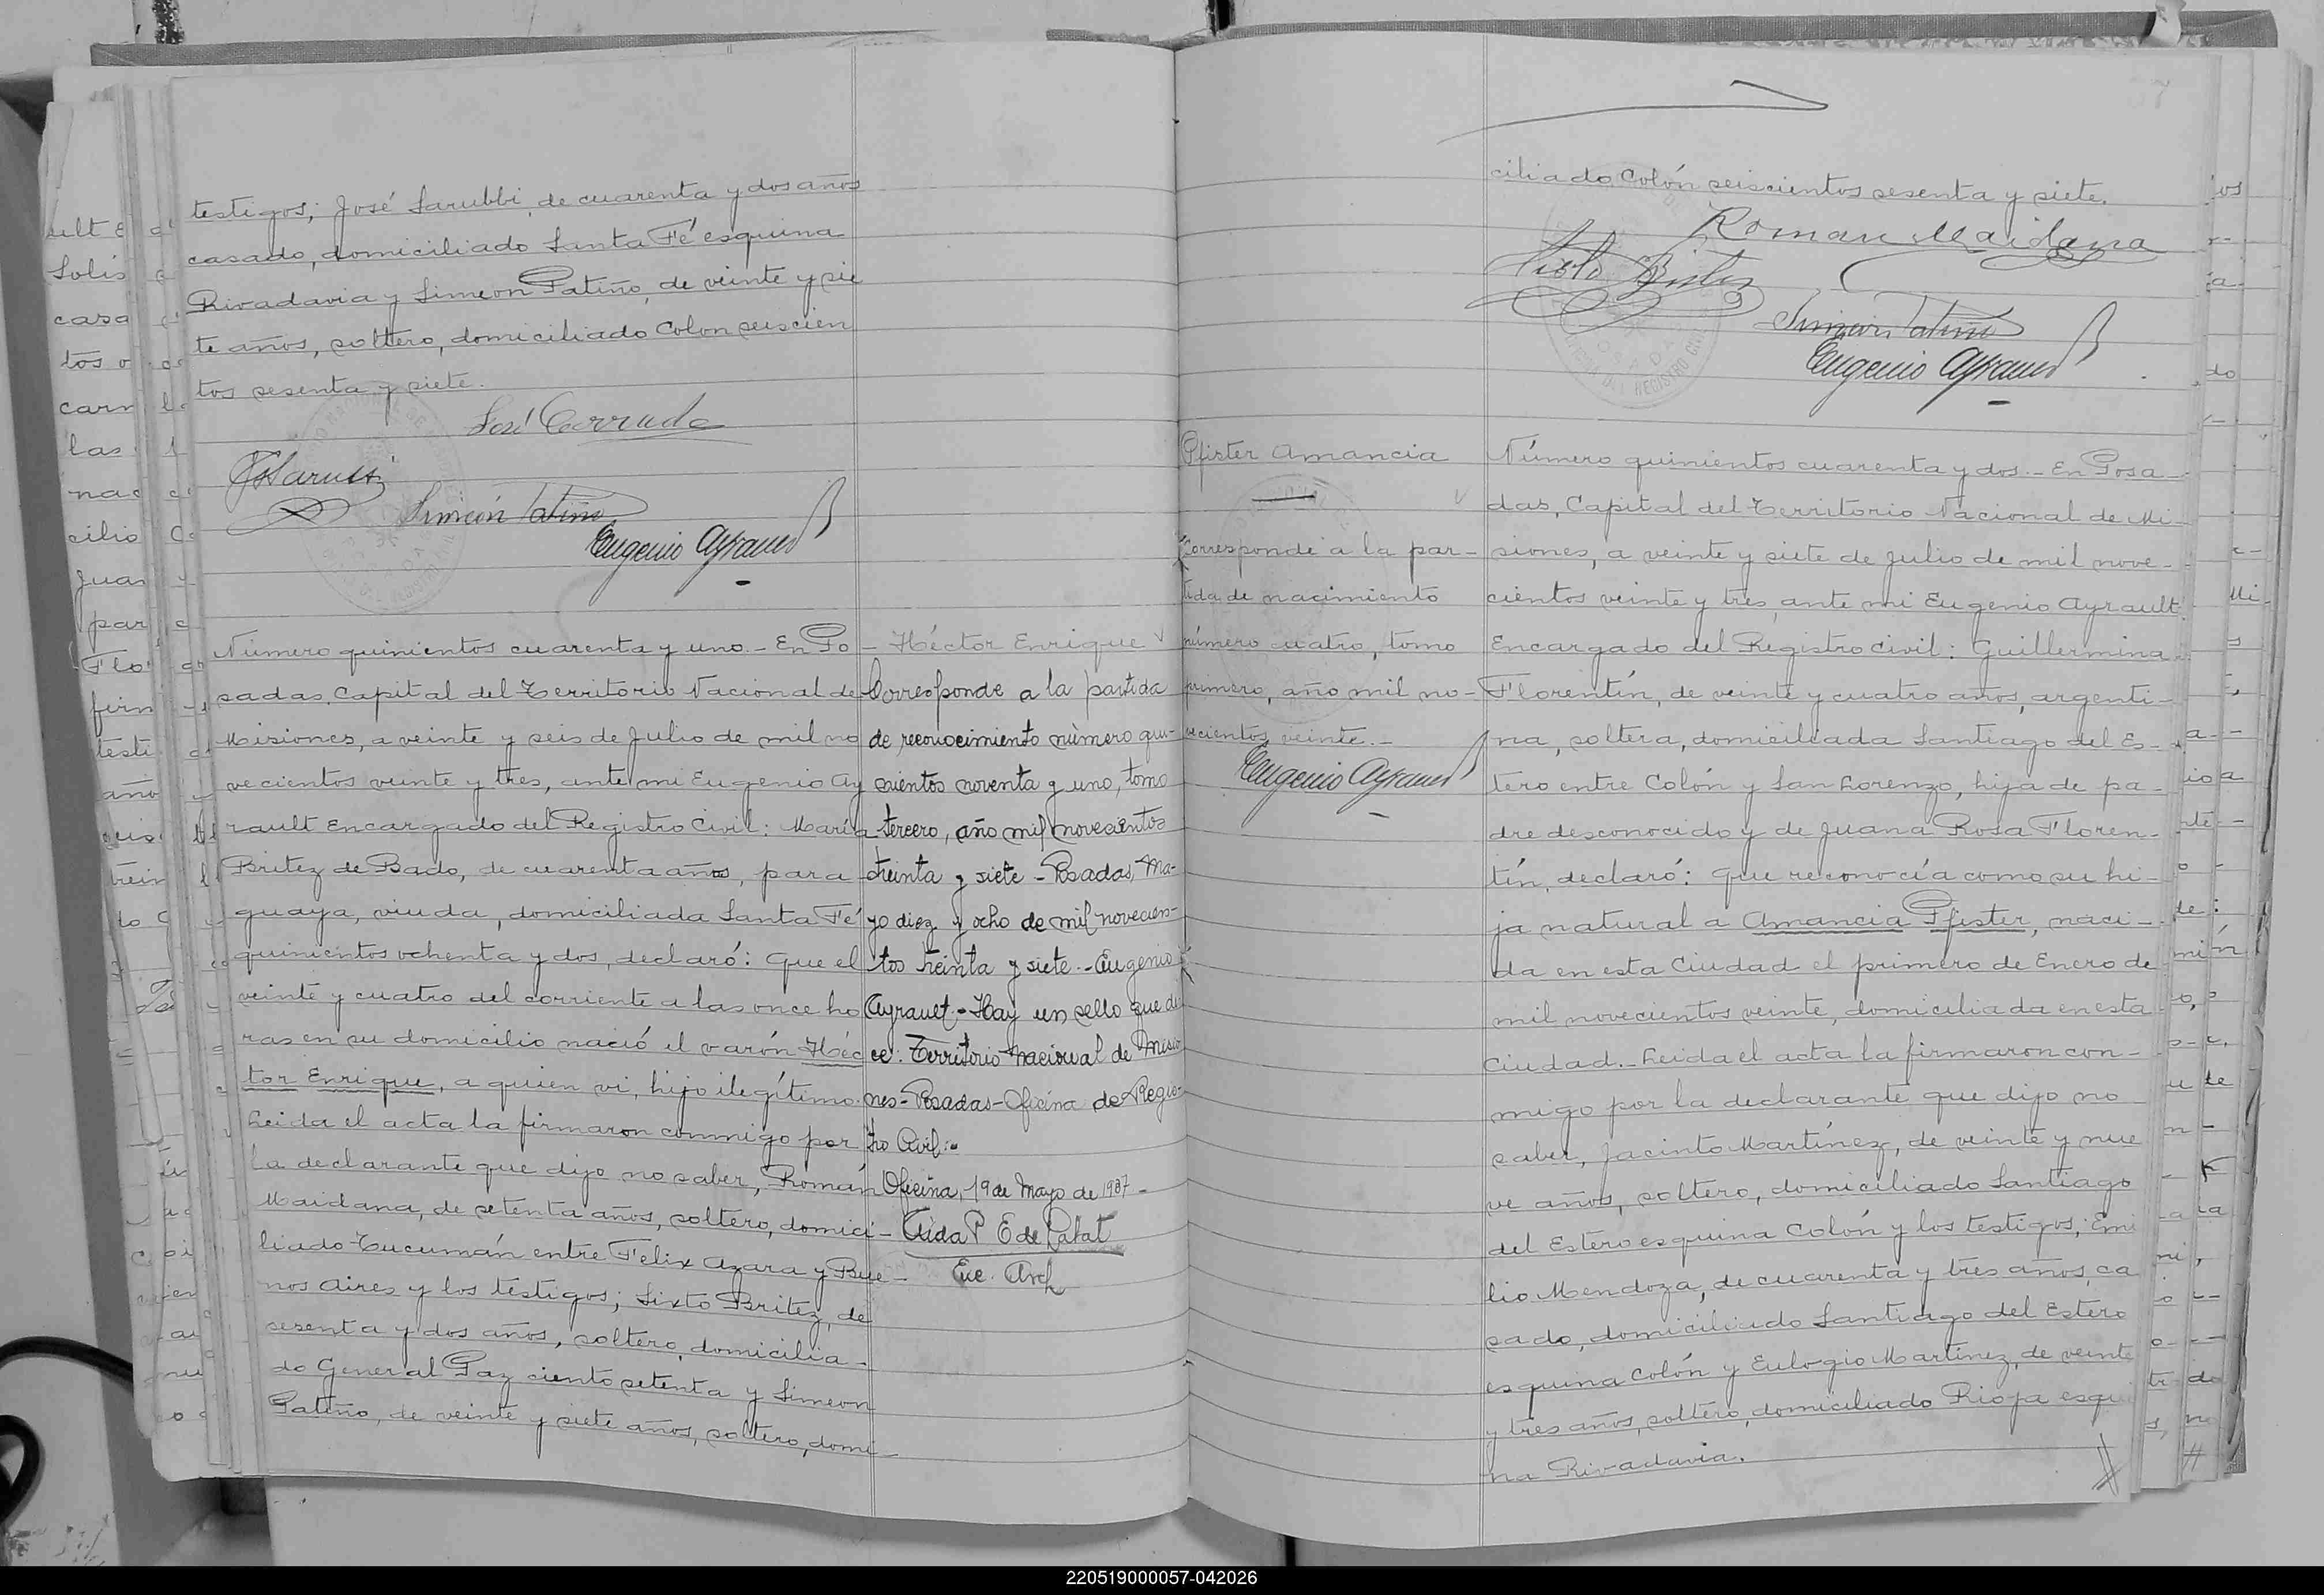 testigos; José Sarubbi, de cuarenta y dos años
casado, domiciliado Santa Fé esquina
Rivadavia y Simeon Patiño, de veinte y sie
te años, soltero, domiciliado Colon seiscien
tos sesenta y siete.
José Cerrudo
Simeón Patiño
Eugenio Ayrault
Número quinientos cuarenta y uno.- En Po-
sadas, Capital del Territorio Nacional de
Misiones, a veinte y seis de Julio de mil no
vecientos veinte y tres, ante mi Eugenio Ay
rault Encargado del Registro Civil: María
Britez de Bado, de cuarenta años, para-
guaya, viuda, domiciliada Santa Fé
quinientos ochenta y dos, declaró: Que el
veinte y cuatro del corriente a las once ho
ras en su domicilio nació el varón Héc
tor Enrique, a quien vi, hijo ilegítimo.
Leida el acta la firmaron conmigo por
la declarante que dijo no saber, Román
Maidana, de setenta años, soltero, domici-
liado Tucumán entre Felix Azara y Bue-
nos Aires y los testigos; Sixto Britez, de
sesenta y dos años, soltero, domicilia-
do General Paz ciento setenta y Simeon
Patiño, de veinte y siete años, soltero, domi-
- Héctor Enrique
Corresponde a la partida
de reconocimiento número qui-
nientos noventa y uno, tomo
tercero, año mil novecientos
treinta y siete - Posadas, Ma-
yo diez y ocho de mil novecien-
tos treinta y siete.- Eugenio
Ayrault - Hay un sello que di
ce: Territorio Nacional de Misio
nes - Posadas - Oficina de Regis-
tro Civil.-
Oficina, 19 de Mayo de 1937 -
Aida P E de
Enc. Arch
ciliado Colón seiscientos sesenta y siete.
Roman Maidana
Sixto Britez
Simeón Patiño
Eugenio Ayrault
Pfister Amancia
Corresponde a la par-
tida de nacimiento
número cuatro, tomo
primero, año mil no-
vecientos veinte.-
Eugenio Ayrault
Número quinientos cuarenta y dos.- En Posa-
das, Capital del Territorio Nacional de Mi-
siones, a veinte y siete de Julio de mil nove-
cientos veinte y tres, ante mi Eugenio Ayrault
Encargado del Registro Civil: Guillermina
Florentín, de veinte y cuatro años, argenti-
na, soltera, domiciliada Santiago del Es-
tero entre Colón y San Lorenzo, hija de pa-
dre desconocido y de Juana Rosa Floren-
tín, declaró: Que reconocía como su hi-
ja natural a Amancia Pfister, naci-
da en esta Ciudad el primero de Enero de
mil novecientos veinte, domiciliada en esta
Ciudad.- Leida el acta la firmaron con-
migo por la declarante que dijo no
saber, Jacinto Martínez, de veinte y nue
ve años, soltero, domiciliado Santiago
del Estero esquina Colón y los testigos; Emi
lio Mendoza, de cuarenta y tres años, ca
sado, domiciliado Santiago del Estero
esquina Colón y Eulogio Martínez, de veinte
y tres años, soltero, domiciliado Rioja esqui
na Rivadavia.
220519000057-042026